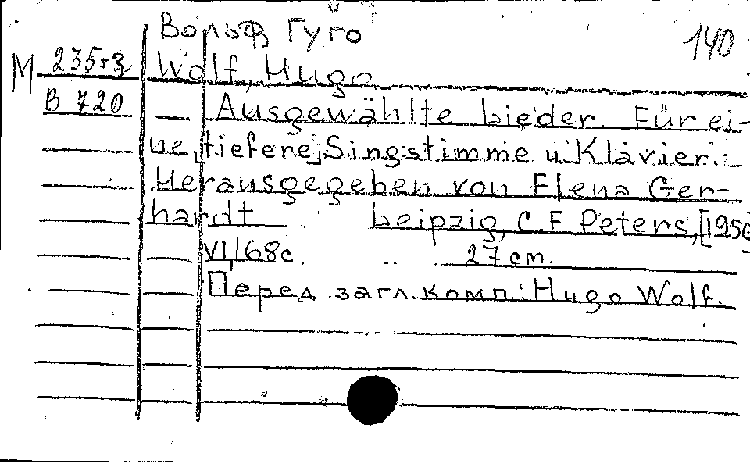 Вольф Гуго
140
М 235-3 Wolf, Hugo
В 720 — Ausgewählte Lieder. Für ei-
ne [tiefere] Singstimme u. Klavier.
Herausgegeben von Elena Ger-
hardt Leipzig, C. F. Peters, [1956
VI, 68 с. 27 cm.
Перед загл. комп.: Hugo Wolf.